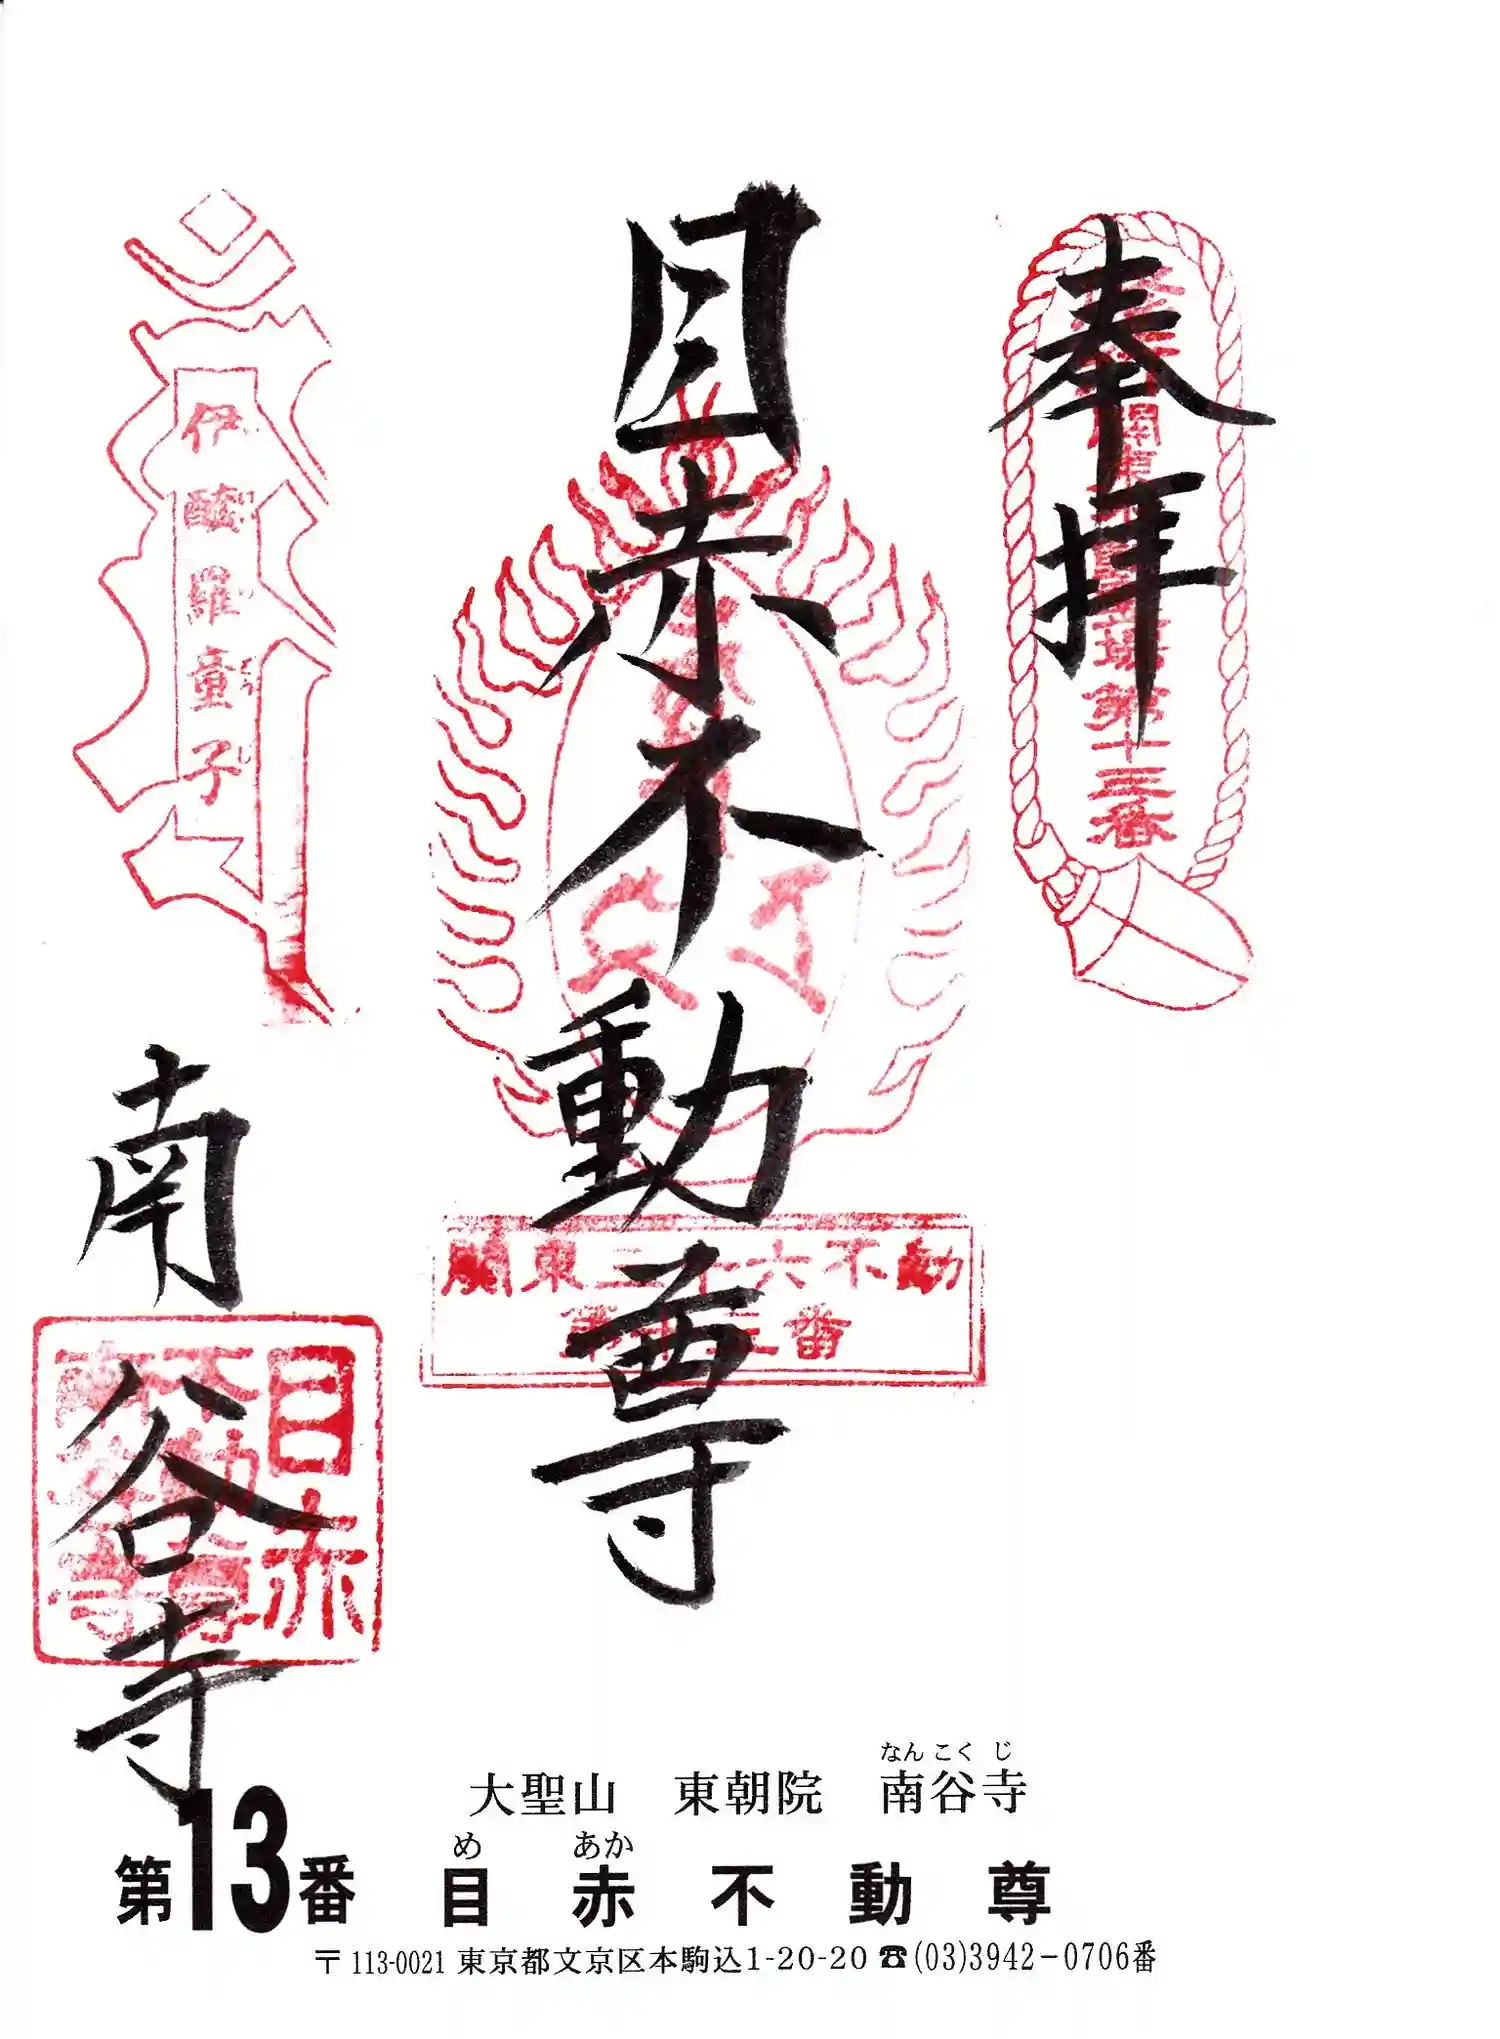 奉拝
關東
霊場第十三番
目赤不動尊
關東三十六不動
第十三番
伊醯羅童子
どうじ
南谷寺
目赤
不動尊
南谷寺
なんこくじ
大聖山 東朝院 南谷寺
め あか
第13番 目赤不動尊
〒113-0021 東京都文京区本駒込1-20-20 ☎(03)3942-0706番